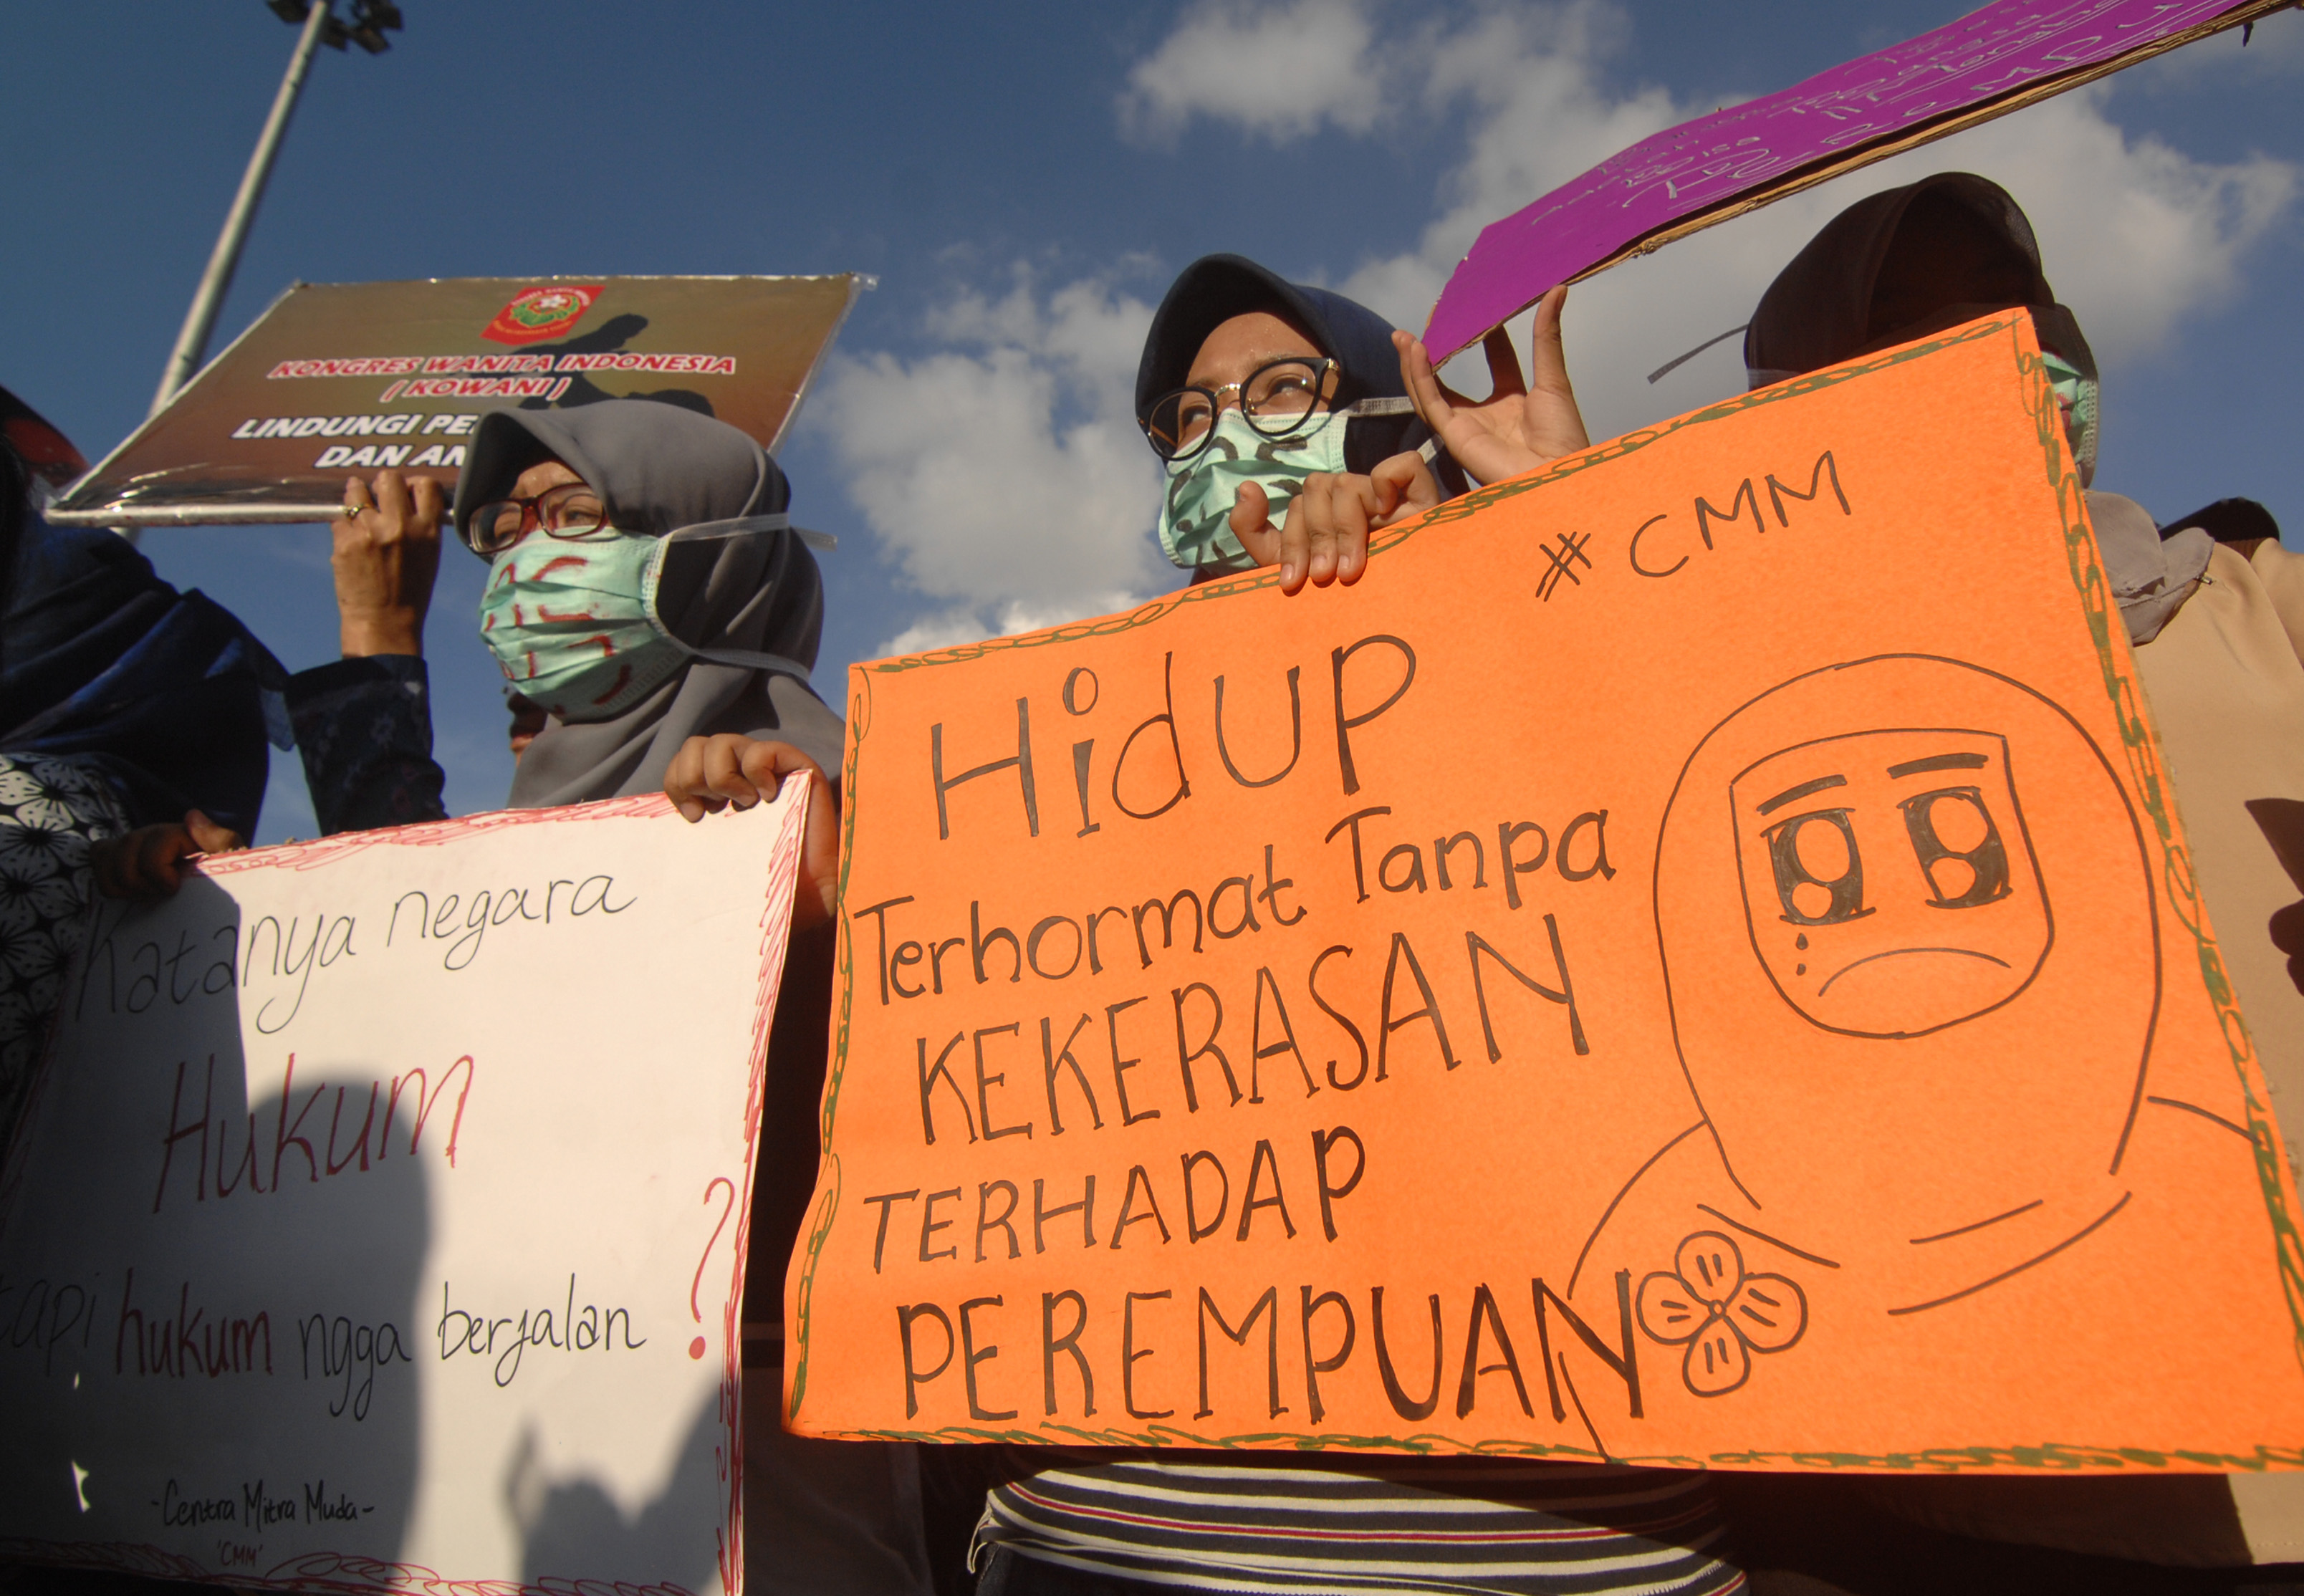 KONGRES WANITA INDONESIA
( KOWANI )
LINDUNGI PE
DAN AN
# CMM
Hidup
Terhormat Tanpa
KEKERASAN
TERHADAP
PEREMPUAN
Katanya negara
Hukum
tapi hukum ngga berjalan ?
-Centra Mitra Muda-
'CMM'